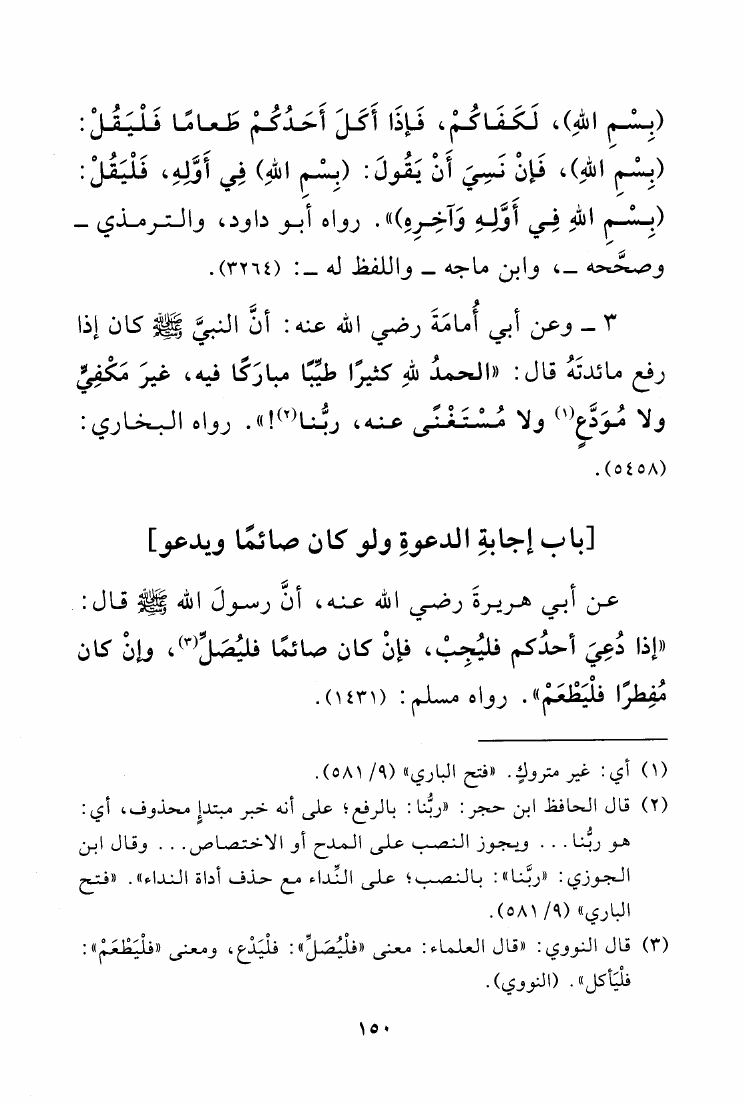 (بِسْمِ اللهِ)، لَكَفَاكُمْ، فَإِذَا أَكَلَ أَحَدُكُمْ طَعامًا فَلْيَقُلْ:
(بِسْمِ اللهِ)، فَإِنْ نَسِيَ أَنْ يَقُولَ: (بِسْمِ اللهِ) فِي أَوَّلِهِ، فَلْيَقُلْ:
(بِسْمِ اللهِ فِي أَوَّلِهِ وَآخِرِهِ)». رواه أبو داود، والترمذي ـ
وصحَّحه ـ، وابن ماجه ـ واللفظ له ـ: (٣٢٦٤).
٣ ـ وعن أبي أُمامَةَ رضي الله عنه: أنَّ النبيَّ ﷺ كان إذا
رفع مائدتَهُ قال: «الحمدُ للهِ كثيرًا طيِّبًا مباركًا فيه، غيرَ مَكْفِيٍّ
ولا مُوَدَّعٍ(١) ولا مُسْتَغْنًى عنه، ربُّنا(٢)!». رواه البخاري:
(٥٤٥٨).
[باب إجابةِ الدعوةِ ولو كان صائمًا ويدعو]
عن أبي هريرةَ رضي الله عنه، أنَّ رسولَ الله ﷺ قال:
«إذا دُعِيَ أحدُكم فليُجِبْ، فإنْ كان صائمًا فليُصَلِّ(٣)، وإنْ كان
مُفطرًا فلْيَطْعَمْ». رواه مسلم: (١٤٣١).
(١) أي: غير متروكٍ. «فتح الباري» (٩/ ٥٨١).
(٢) قال الحافظ ابن حجر: «ربُّنا: بالرفع؛ على أنه خبر مبتدإٍ محذوف، أي:
هو ربُّنا... ويجوز النصب على المدح أو الاختصاص... وقال ابن
الجوزي: «ربَّنا»: بالنصب؛ على النِّداء مع حذف أداة النداء». «فتح
الباري» (٩/ ٥٨١).
(٣) قال النووي: «قال العلماء: معنى «فلْيُصَلِّ»: فلْيَدْع، ومعنى «فلْيَطْعَمْ»:
فلْيَأكل». (النووي).
١٥٠